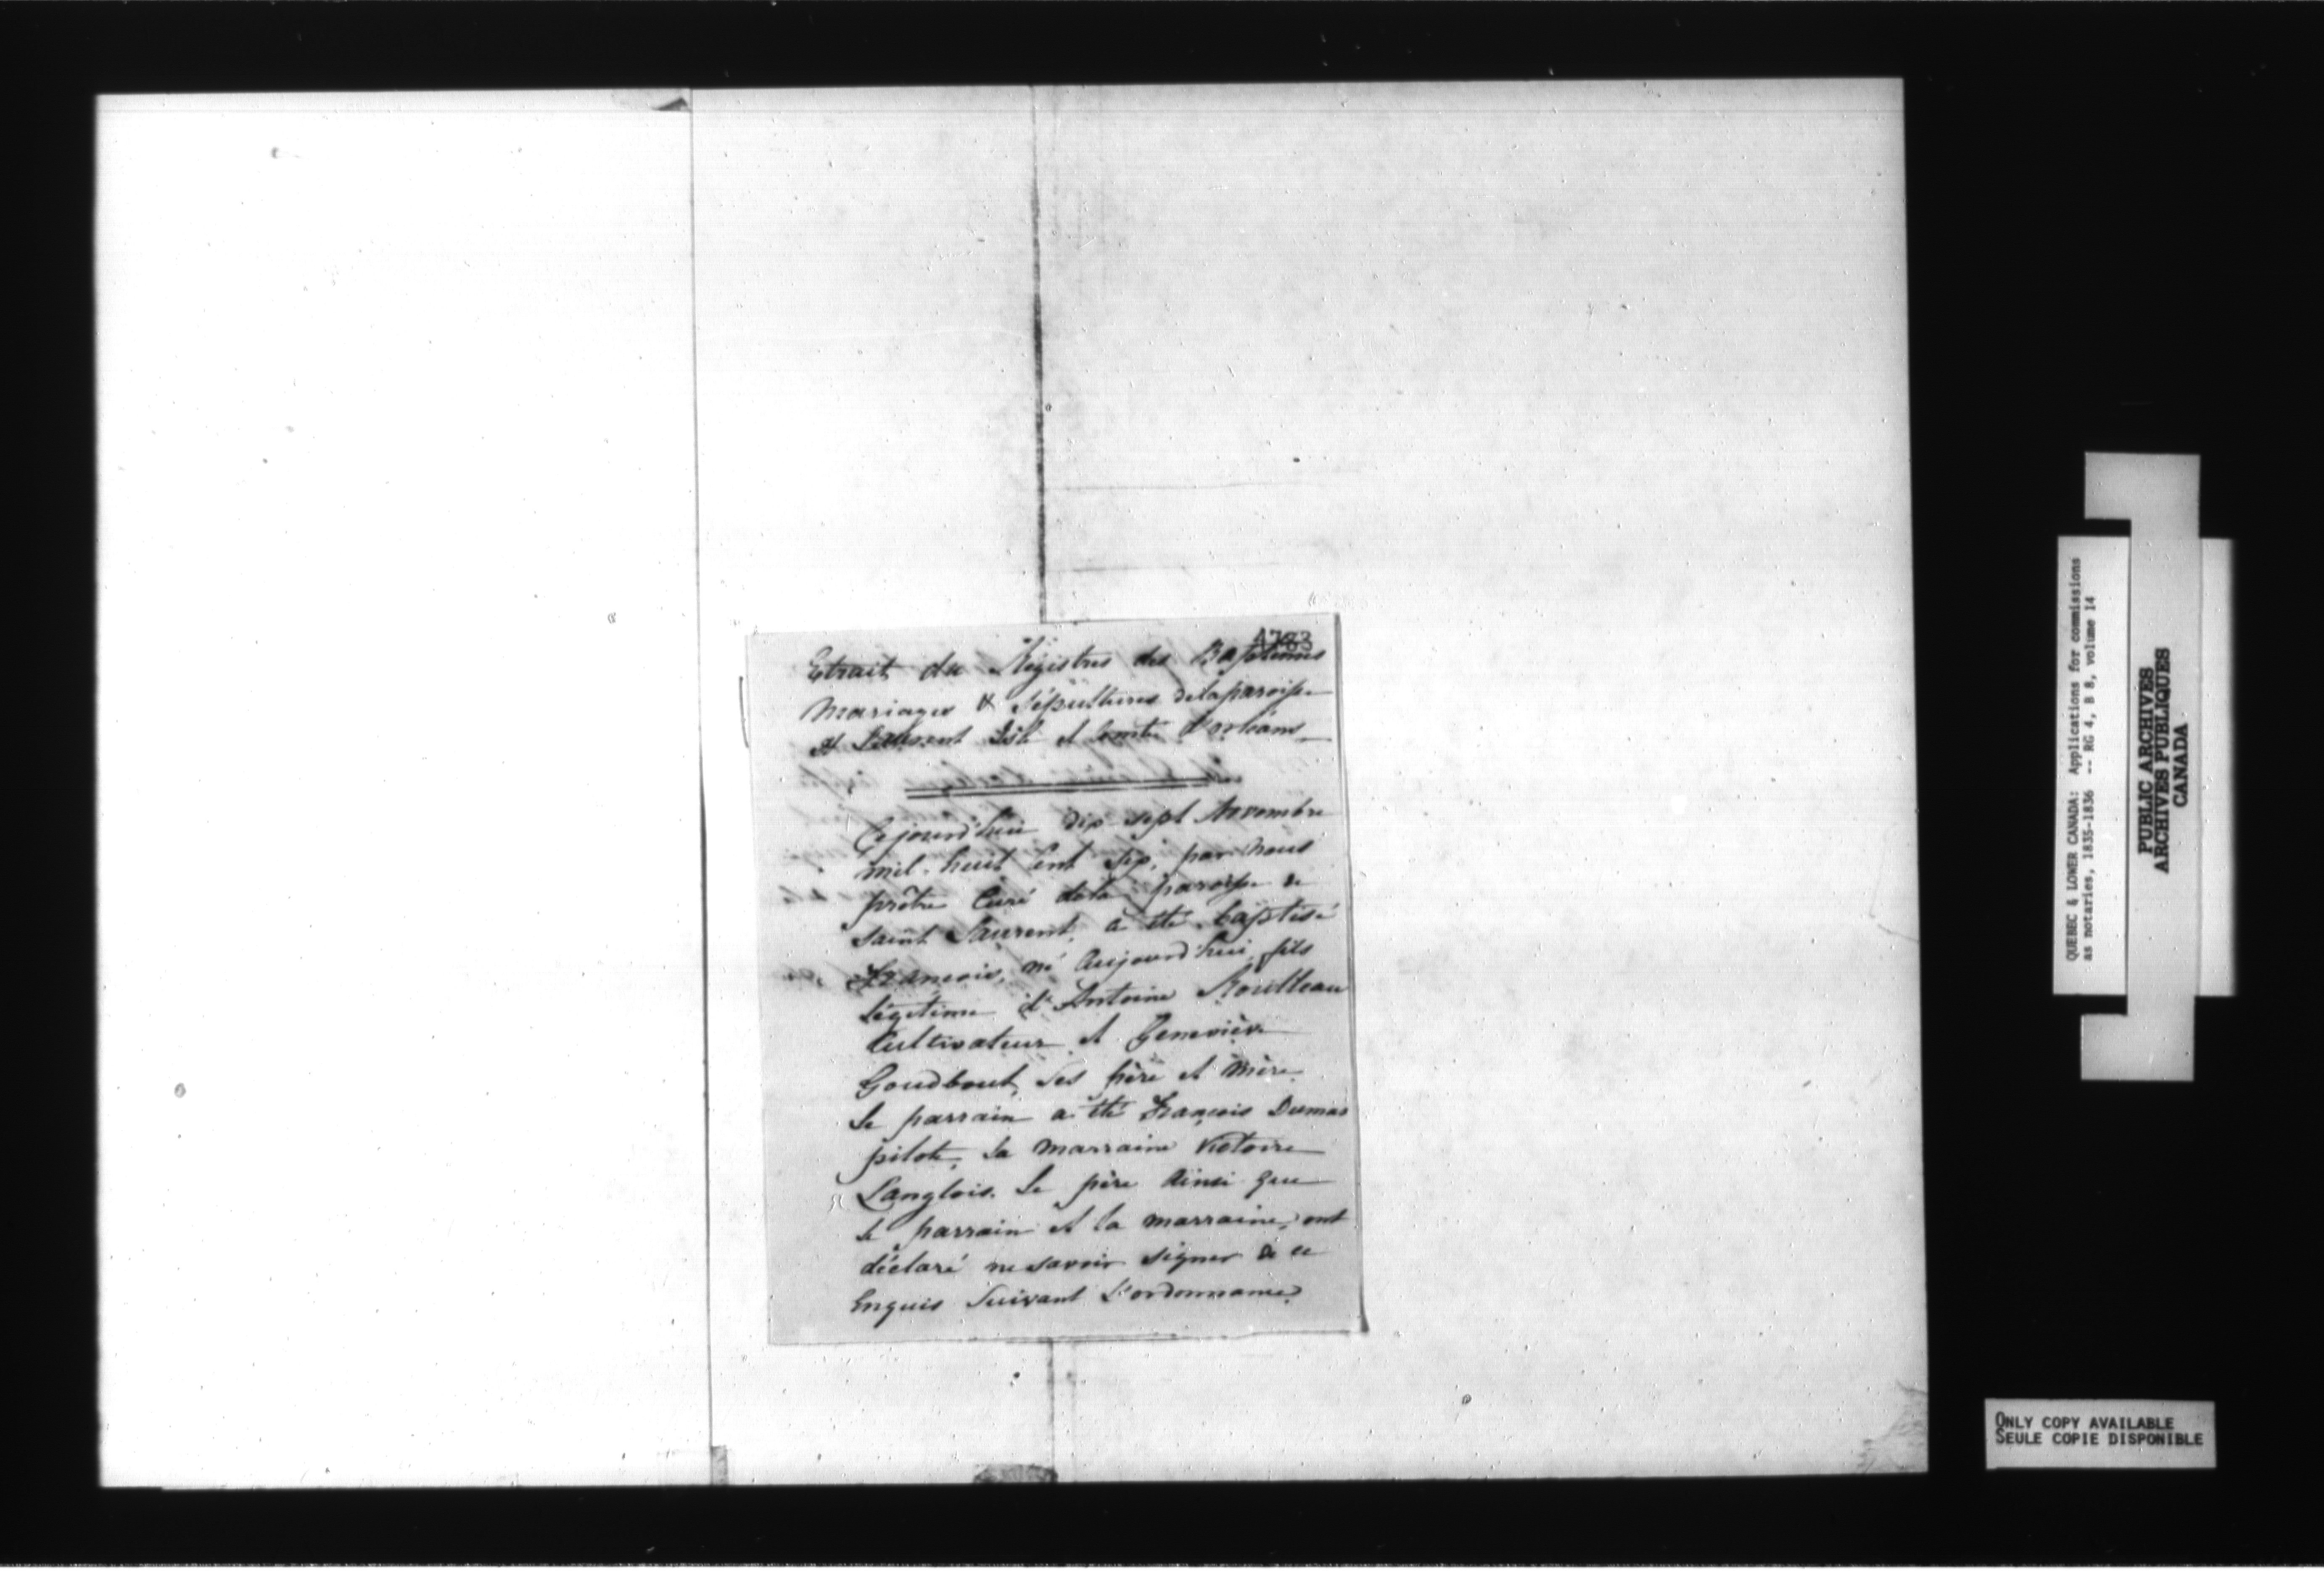 4783
Extrait du Régistres des Baptêmes
Mariages & Sépultures dela paroisse
St Laurent Isle et Comté d'orléans
Cejourd'hui dix-sept Novembre
mil-huit Cent Six, par Nous
prêtre Curé dela paroisse de
Saint Laurent, a été baptisé
François, né Aujourd'hui, fils
légitime d'Antoine Roulleau
Cultivateur et Geneviève
Goudbout, Ses père et Mère
Le parrain a été François Dumas
pilote, la Marraine Victoire
Langlois. Le père Ainsi que
le parrain et la marraine, ont
déclaré ne savoir signer de ce
Enquis Suivant L'ordonnance
QUEBEC & LOWER CANADA: Applications for commissions
as notaries, 1835-1836 -- RG 4, B 8, volume 14
PUBLIC ARCHIVES
ARCHIVES PUBLIQUES
CANADA
ONLY COPY AVAILABLE
SEULE COPIE DISPONIBLE